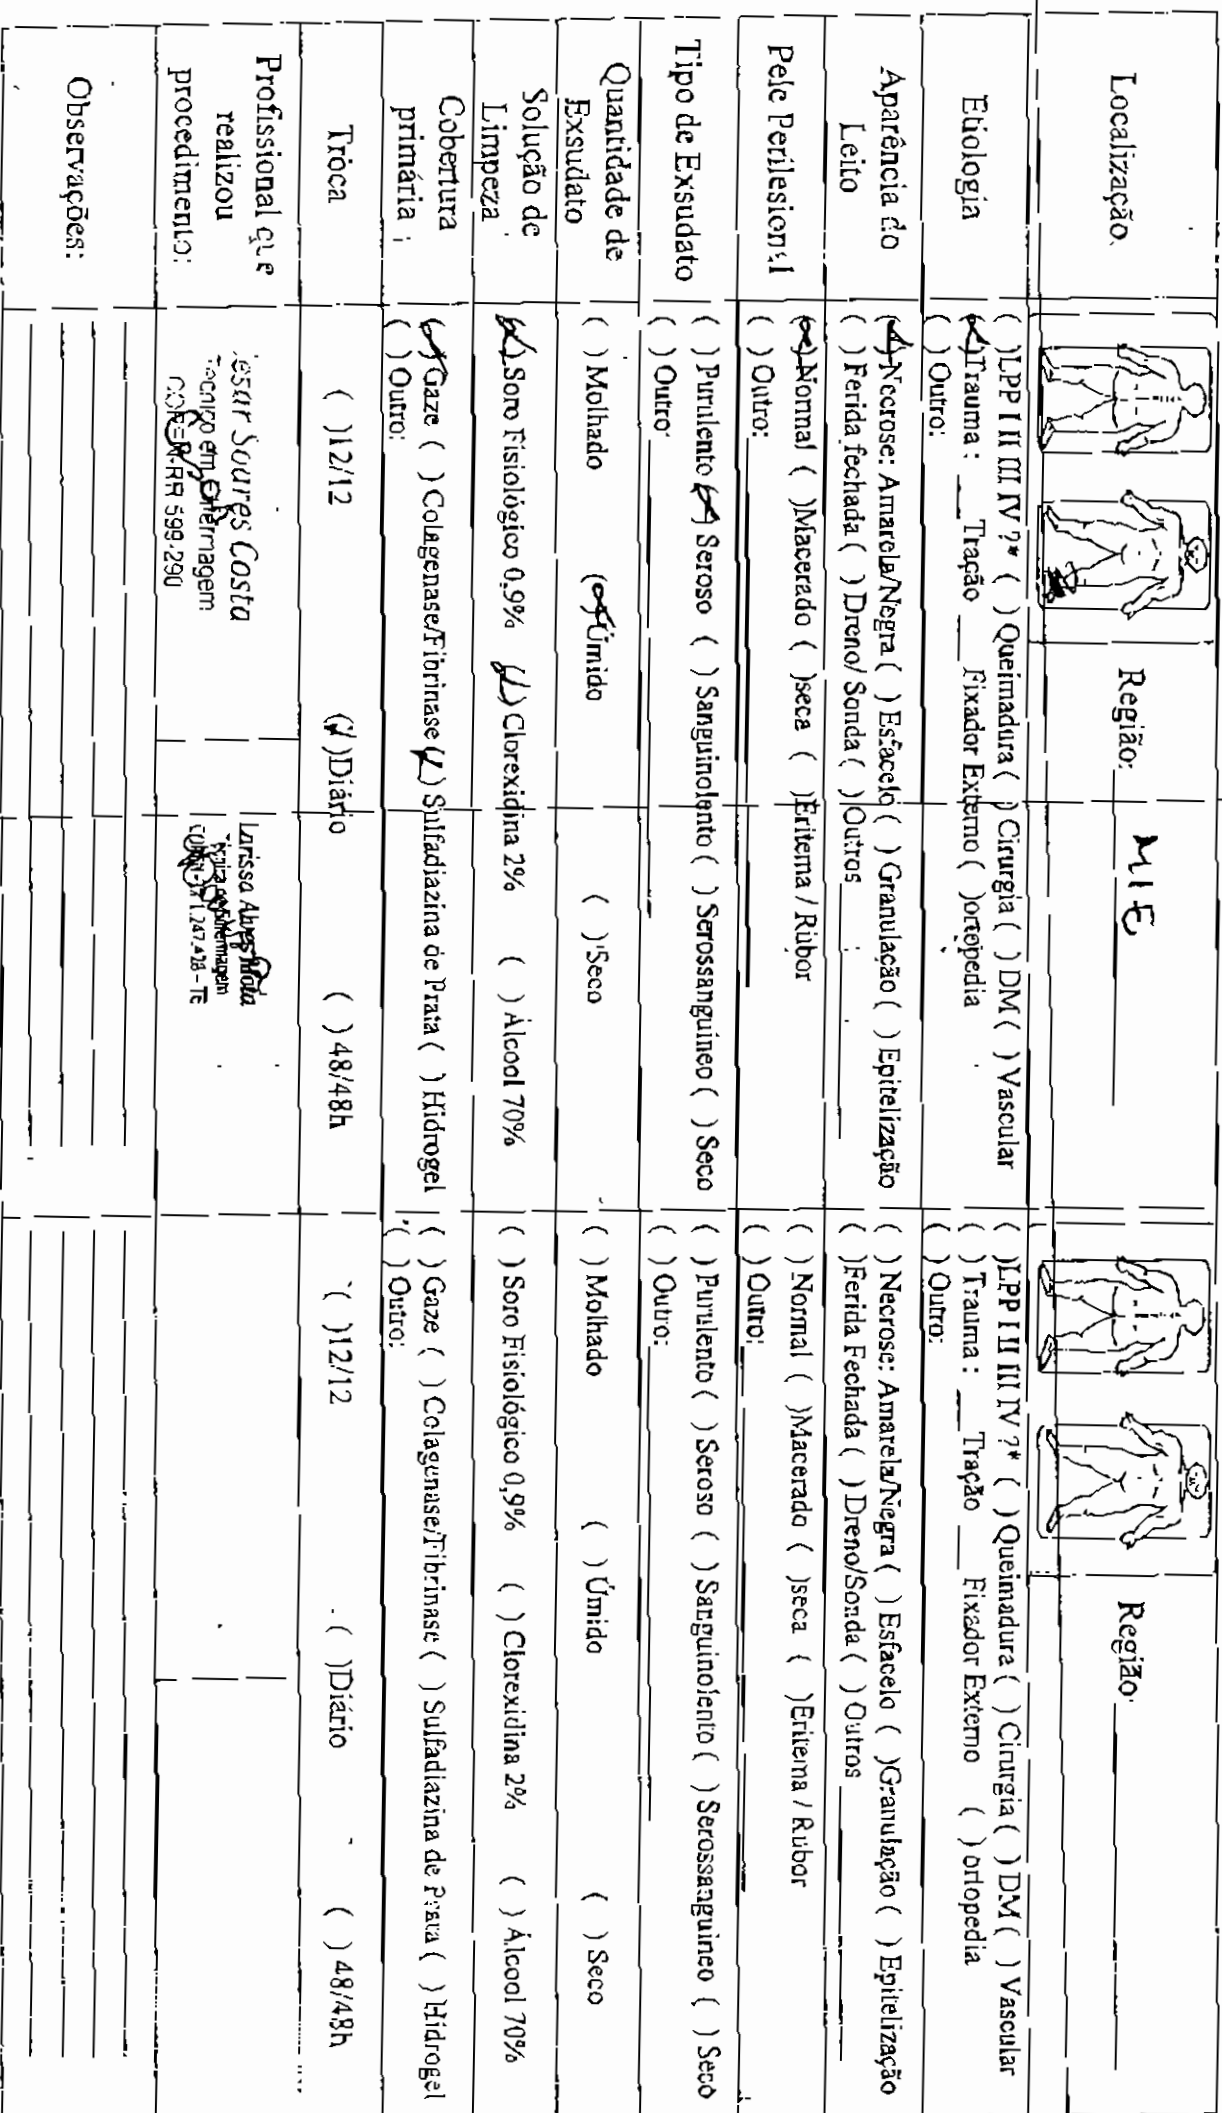 Localização
Região: MIE
Região:
Etiologia
( )LPP I II III IV ?* ( ) Queimadura ( ) Cirurgia ( ) DM ( ) Vascular
(x)Trauma : ___ Tração ___ Fixador Externo ( )ortopedia
( ) Outro:
( )LPP I II III IV ?* ( ) Queimadura ( ) Cirurgia ( ) DM ( ) Vascular
( ) Trauma : ___ Tração ___ Fixador Externo ( ) ortopedia
( ) Outro:
Aparência do
Leito
(x)Necrose: Amarela/Negra ( ) Esfacelo ( ) Granulação ( ) Epitelização
( ) Ferida fechada ( ) Dreno/ Sonda ( ) Outros
( ) Necrose: Amarela/Negra ( ) Esfacelo ( )Granulação ( ) Epitelização
( )Ferida Fechada ( ) Dreno/Sonda ( ) Outros
Pele Perilesional
(x)Normal ( )Macerado ( )seca ( )Eritema / Rubor
( ) Outro:
( ) Normal ( )Macerado ( )seca ( )Eritema / Rubor
( ) Outro:
Tipo de Exsudato
( ) Purulento (x) Seroso ( ) Sanguinolento ( ) Serossanguineo ( ) Seco
( ) Outro:
( ) Purulento ( ) Seroso ( ) Sanguinolento ( ) Serossanguineo ( ) Seco
( ) Outro:
Quantidade de
Exsudato
( ) Molhado (x)Úmido ( ) Seco
( ) Molhado ( ) Úmido ( ) Seco
Solução de
Limpeza
(x)Soro Fisiológico 0,9% (x)Clorexidina 2% ( ) Álcool 70%
( ) Soro Fisiológico 0,9% ( ) Clorexidina 2% ( ) Álcool 70%
Cobertura
primária :
(x)Gaze ( ) Colagenase/Fibrinase (x) Sulfadiazina de Prata ( ) Hidrogel
( ) Outro:
( ) Gaze ( ) Colagenase/Fibrinase ( ) Sulfadiazina de Prata ( ) Hidrogel
( ) Outro:
Troca
( )12/12 (x)Diário ( ) 48/48h
( )12/12 ( )Diário ( ) 48/48h
Profissional que
realizou
procedimento:
Soares Costa
Técnico em Enfermagem
COREN-RR 599.290
Larissa Alves Mota
1.247.428 - TE
Observações: